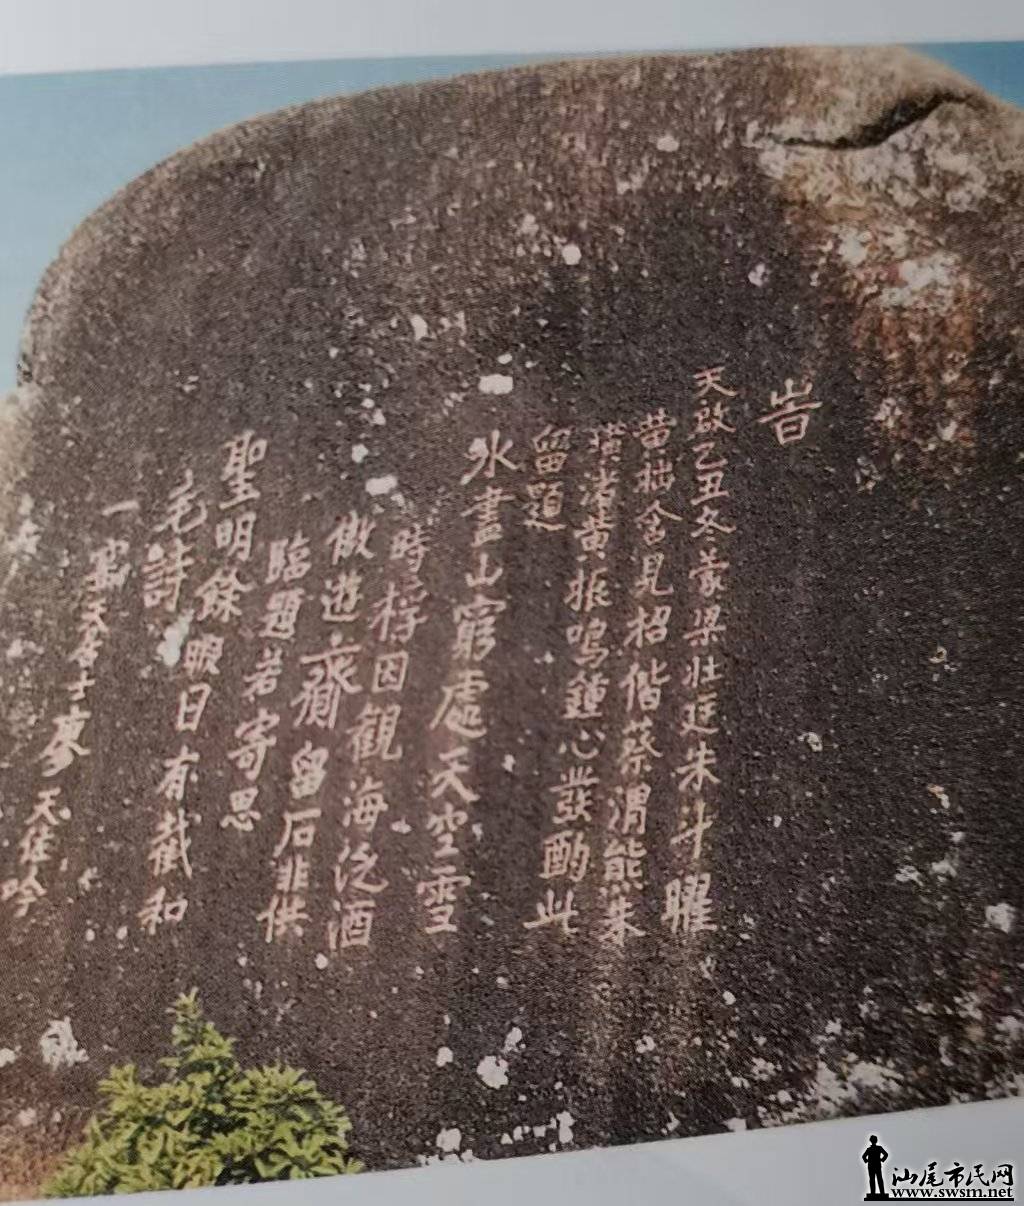 旹
天啟乙丑冬蒙梁壯廷朱斗曜
黄拙含見招偕蔡渭熊朱
璜渚黄振鳴鐘心發酌此
留題
水晝山窮處天空雪
時桴因觀海泛酒
做遊齋留石非供
臨題若寄思
聖明餘暇日有截和
毛詩
一天居士廖天佳吟
汕尾市民网
www.swsm.net